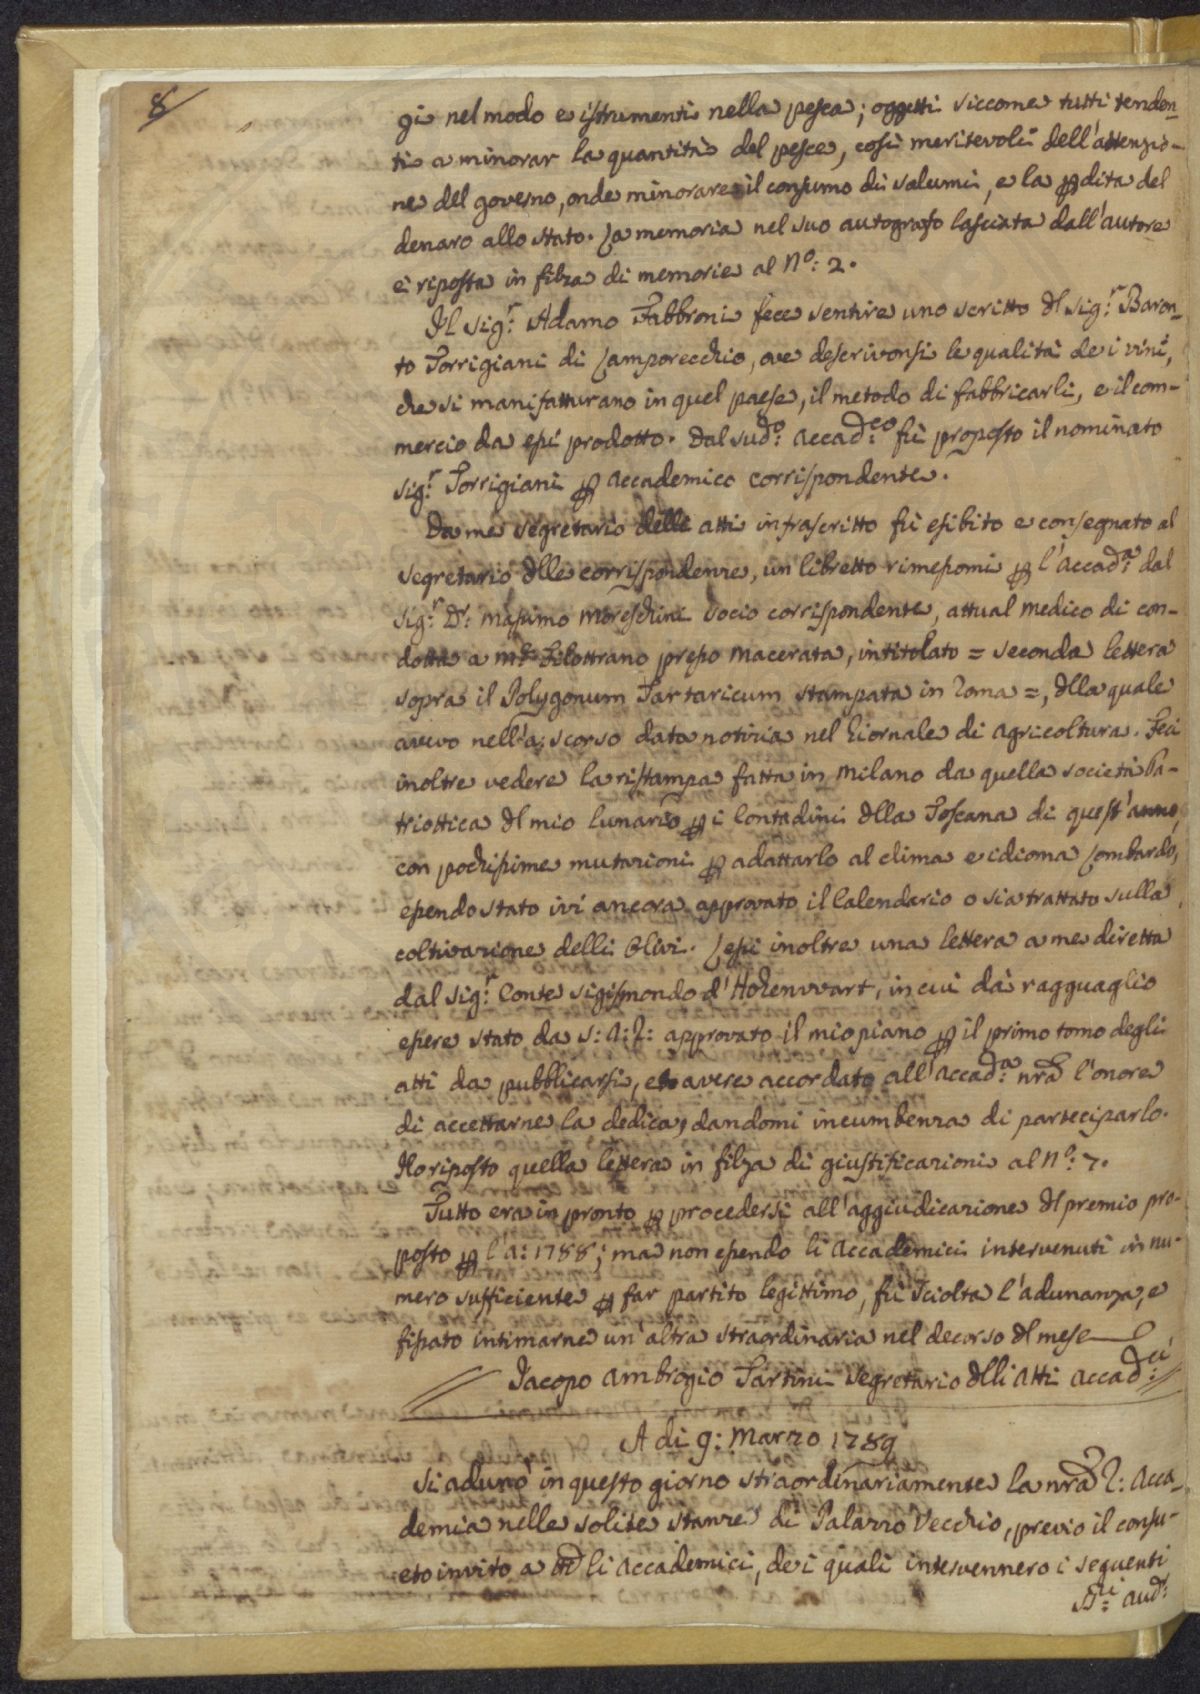 8
gi nel modo e istrumenti nella pesca; oggetti siccome tutti tenden=
ti a minorar la quantità del pesce, così meritevoli dell'attenzio=
ne del governo, onde minorare il consumo di salumi, e la pdita del
denaro allo stato. La memoria nel suo autografo lasciata dall'autore
è riposta in filza di memorie al N.º: 2.
Il Sig.r Adamo Fabbroni fece sentire uno scritto dl Sig.r Baron=
to Torrigiani di Lamporecchio, ove descrivonsi le qualità de i vini,
che si manifatturano in quel paese, il metodo di fabbricarli, e il com=
mercio da essi prodotto. Dal sud.o accad.co fù proposto il nominato
Sig.r Torrigiani p Accademico corrispondente.
Da me segretario delli atti infrascritto fù esibito e consegnato al
segretario dlle corrispondenze, un libretto rimessomi p l'Accad.a dal
Sig.r D.r: Massimo Moreschini socio corrispondente, attual medico di con=
dotta a M.te Filottrano presso Macerata, intitolato = seconda lettera
sopra il Polygonum Tartaricum stampata in Roma =, dlla quale
avevo nell'a: scorso data notizia nel Giornale di Agricoltura. Feci
inoltre vedere la ristampa fatta in Milano da quella società Pa=
triottica dl mio lunario p i Contadini dlla Toscana di quest'anno,
con pochissime mutazioni p adattarlo al clima e idioma Lombardo,
essendo stato ivi ancora approvato il Calendario o sia trattato sulla
coltivazione delli Olivi. Lessi inoltre una lettera a me diretta
dal Sig.r Conte Sigismondo d'Hohenwart, in cui dà ragguaglio
essere stato da S: A: R: approvato il mio piano p il primo tomo degli
atti da pubblicarsi, e avere accordato all'Accad.a nra l'onore
di accettarne la dedica, dandomi incumbenza di parteciparlo.
Ho riposto quella lettera in filza di giustificazioni al N.º: 7.
Tutto era in pronto p procedersi all'aggiudicazione dl premio pro=
posto p l'a: 1788; ma non essendo li Accademici intervenuti in nu=
mero sufficiente p far partito legittimo, fù sciolta l'adunanza, e
fissato intimarne un'altra straordinaria nel decorso dl mese
Jacopo Ambrogio Tartini segretario dlli Atti Accad.ci
A di 9: Marzo 1789
Si adunò in questo giorno straordinariamente la nra R: Acca=
demia nelle solite stanze di Palazzo Vecchio, previo il consu=
eto invito a li Accademici, de i quali intervennero i seguenti
SS.ri: Aud.r